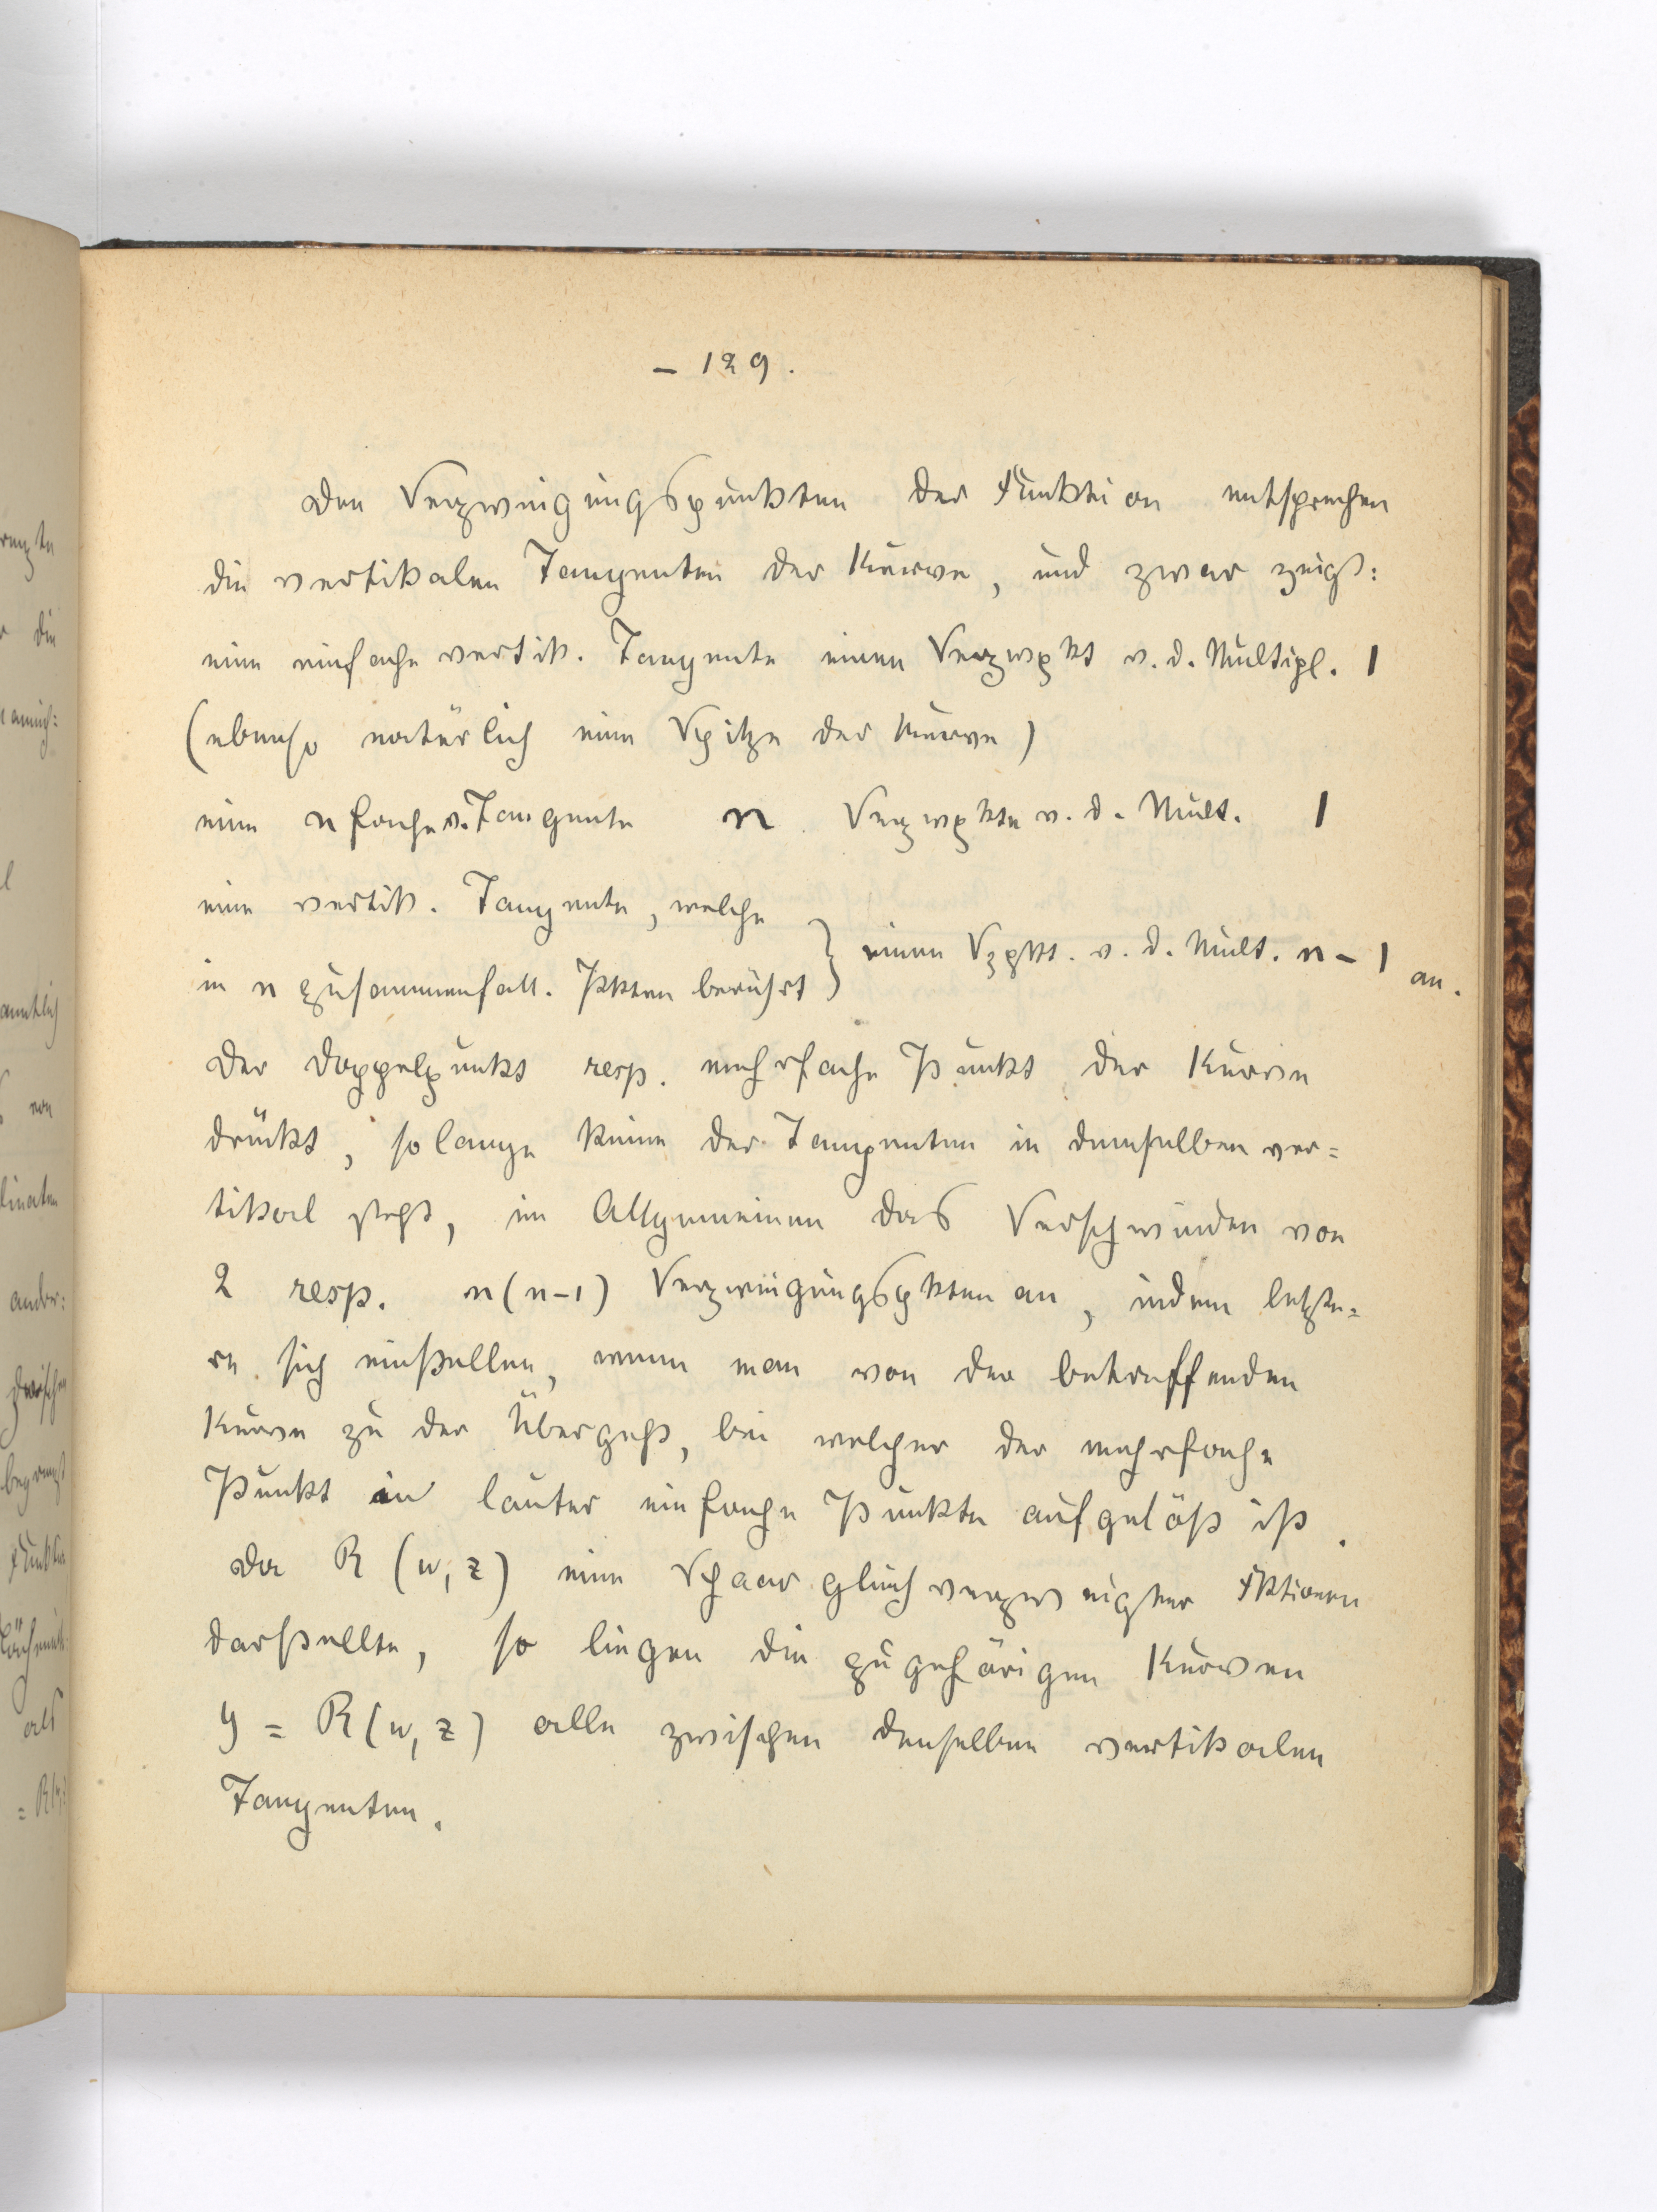 – 129.
Den Verzweigungspunkten der Funktion entsprechen
die vertikalen Tangenten der Kurve, und zwar zeigt:
eine einfache vertik. Tangente einen Verzwpkt v. d. Multipl. 1
(ebenso natürlich eine Spitze der Kurve)
eine n fache v. Tangente n Verzwpkte v. d. Mult. 1
eine vertik. Tangente, welche
in n zusammenfall. Pkten berührt } einen Vzpkt. v. d. Mult. n – 1 an.
Der Doppelpunkt resp. mehrfache Punkt der Kurve
drückt, so lange keine der Tangenten in demselben ver=
tikal steht, im Allgemeinen das Verschwinden von
2 resp. n(n–1) Verzweigungspkten an, indem letzte=
re sich einstellen, wenn man von der betreffenden
Kurve zu der übergeht, bei welcher der mehrfache
Punkt in lauter einfache Punkte aufgelöst ist.
Da R (w, z) eine Schaar gleichverzweigter Fktionen
darstellte, so liegen die zugehörigen Kurven
y = R(w, z) alle zwischen denselben vertikalen
Tangenten.